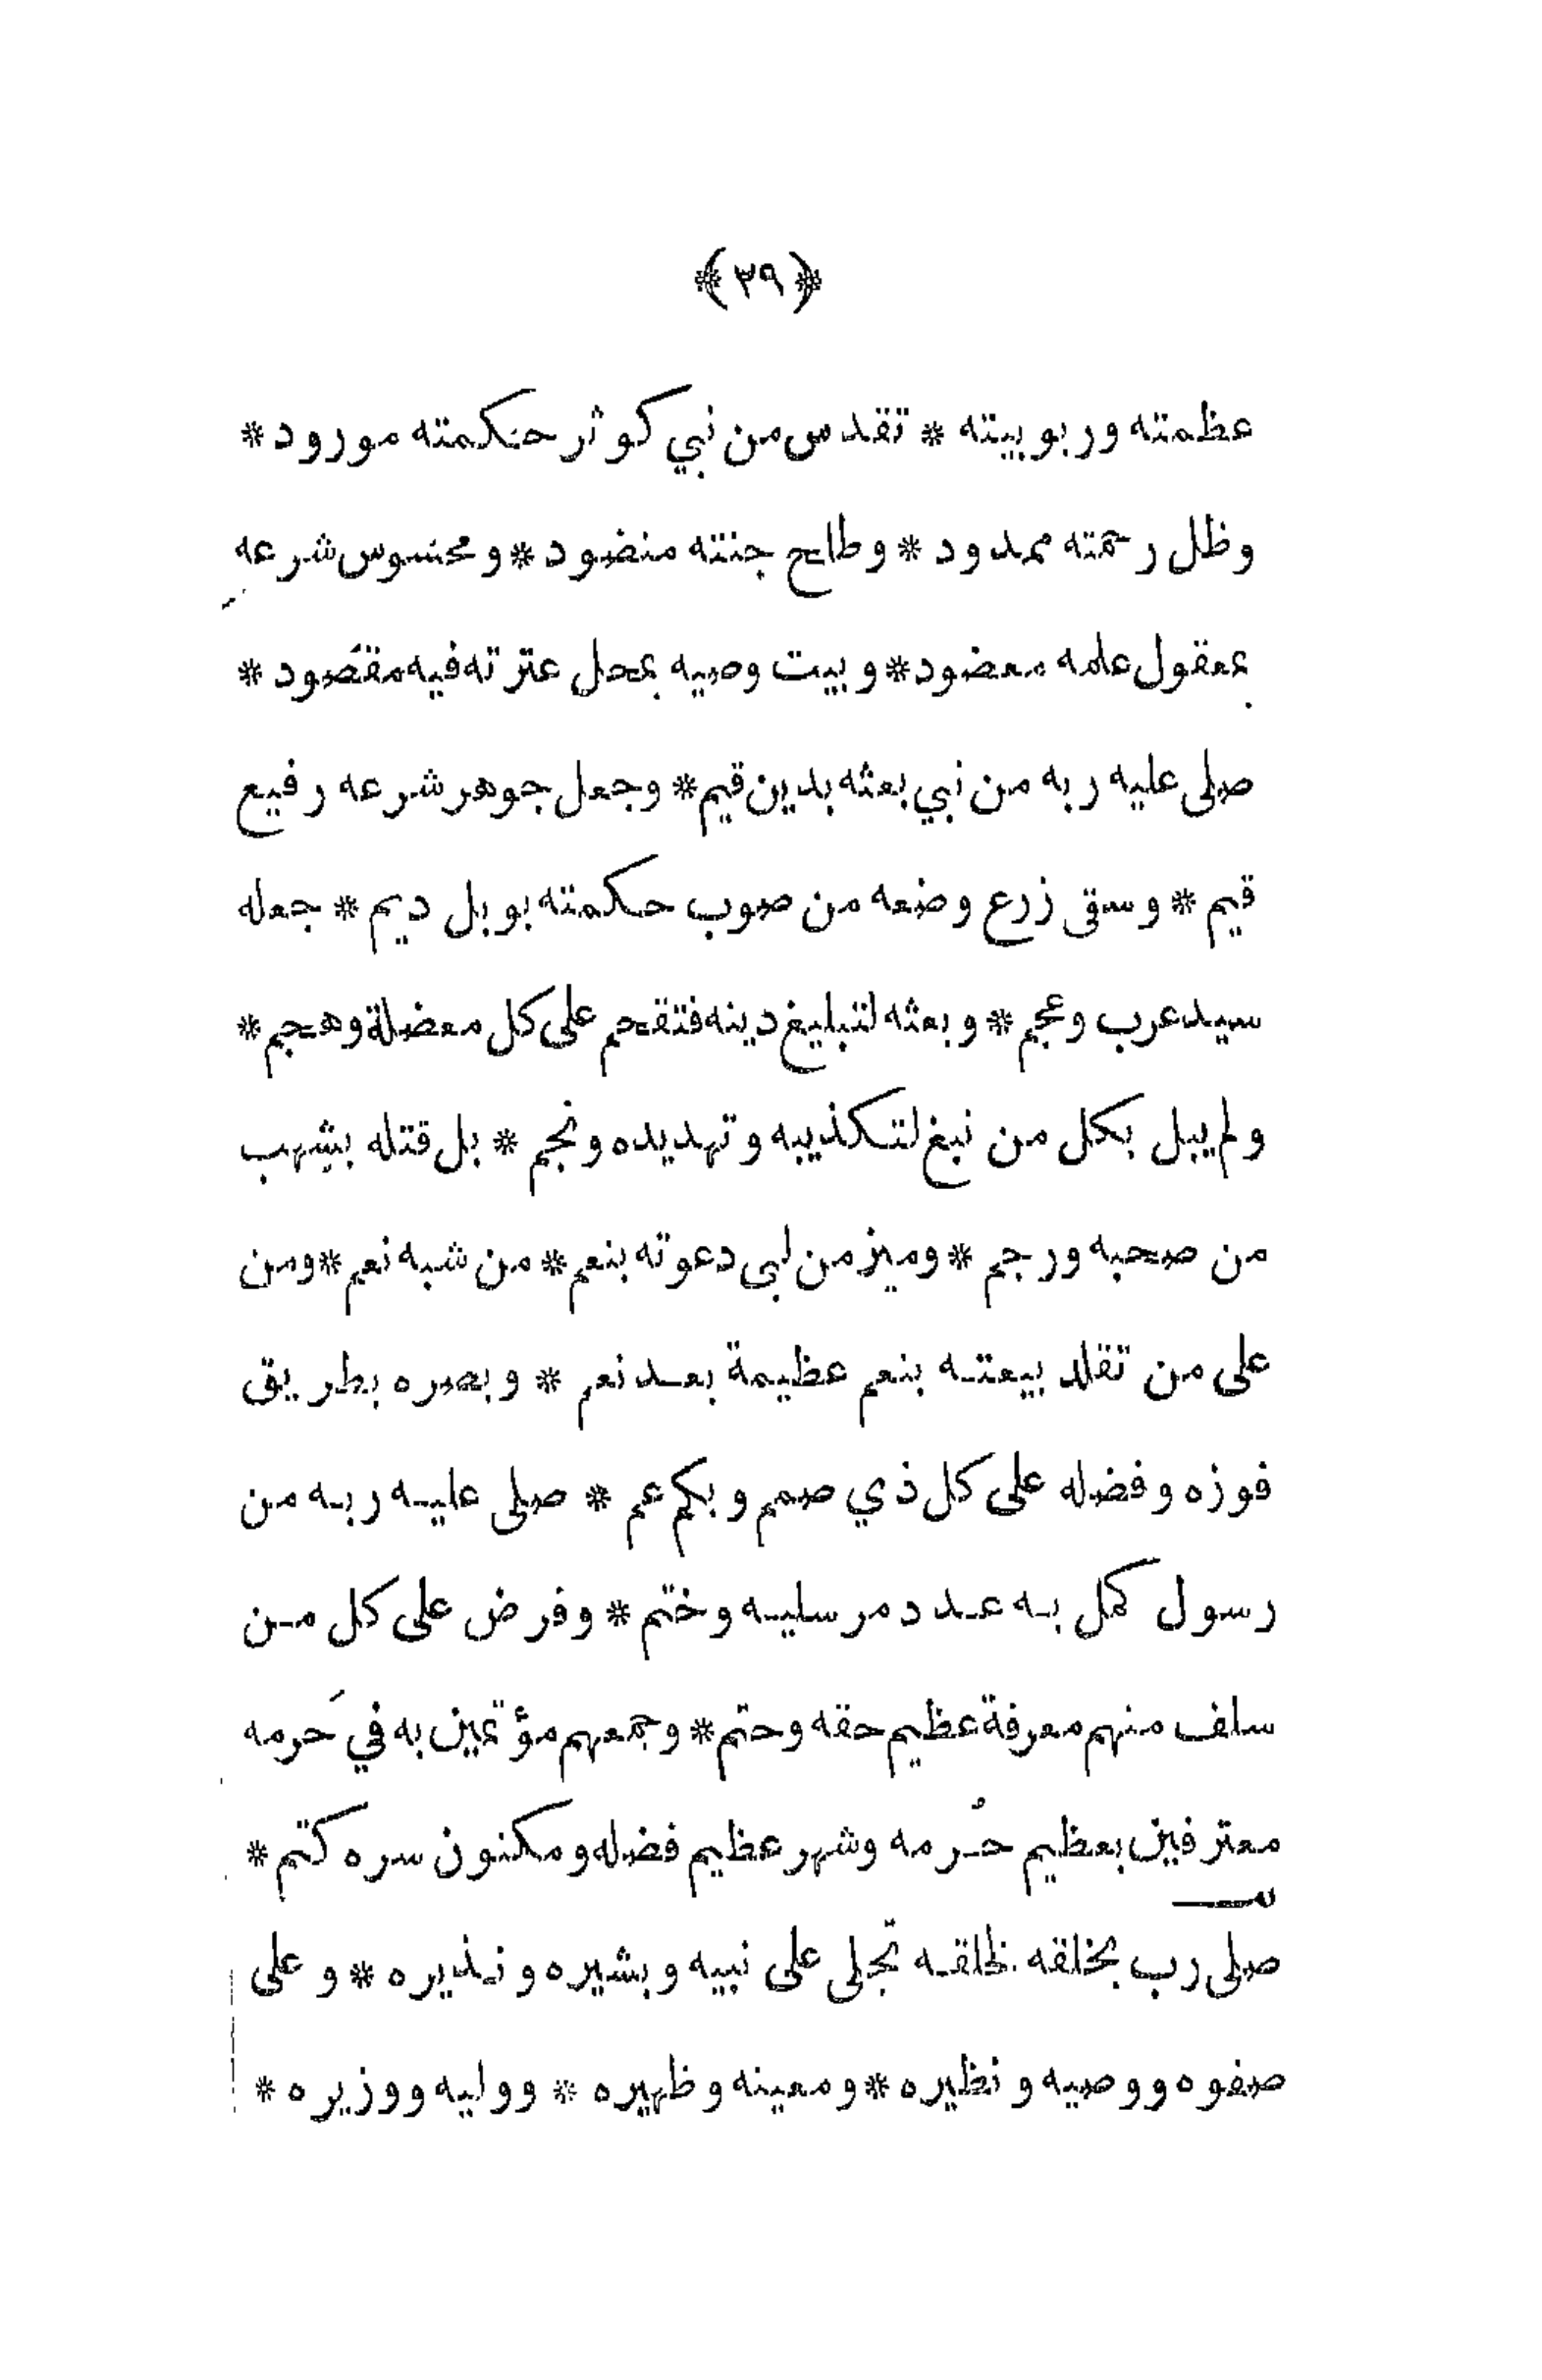 ﴿٣٩﴾
عظمته وربوبيته * تقدس من نبي كوثر حكمته مورود *
وظل رحمته ممدود * وطلح جنته منضود * ومحسوس شرعه
بمعقول علمه معضود * وبيت وصيه بمحل عترته فيه مقصود *
صلى عليه ربه من نبي بعثه بدين قيم * وجعل جوهر شرعه رفيع
قيم * وسقى زرع وضعه من صوب حكمته بوبل ديم * جعله
سيد عرب وعجم * وبعثه لتبليغ دينه فتقحم على كل معضلة وهجم *
ولم يبل بكل من نبغ لتكذيبه وتهديده ونجم * بل قتله بشهب
من صحبه ورجم * وميز من لبى دعوته بنعم * من شبه نعم * ومن
على من تقلد بيعته بنعم عظيمة بعد نعم * وبصره بطريق
فوزه وفضله على كل ذي صمم وبكم عم * صلى عليه ربه من
رسول كمل به عدد مرسليه وختم * وفرض على كل من
سلف منهم معرفة عظيم حقه وحتم * وجمعهم مؤتمين به في حَرمه
معترفين بعظيم حُرمه وشهر عظيم فضله ومكنون سره كتم *
صلى رب بخلقه لخلقه تجلى على نبيه وبشيره ونذيره * وعلى
صفوه ووصيه ونظيره * ومعينه وظهيره * ووليه ووزيره *